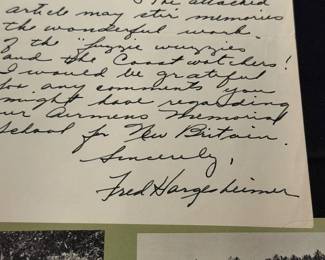 The attached
article may stir memories
the wonderful work
of the "fuzzie wuzzies
and the Coastwatchers!
I would be grateful
for any comments you
might have regarding
our Airmens Memorial
School for New Britain.
Sincerely,
Fred Hargesheimer